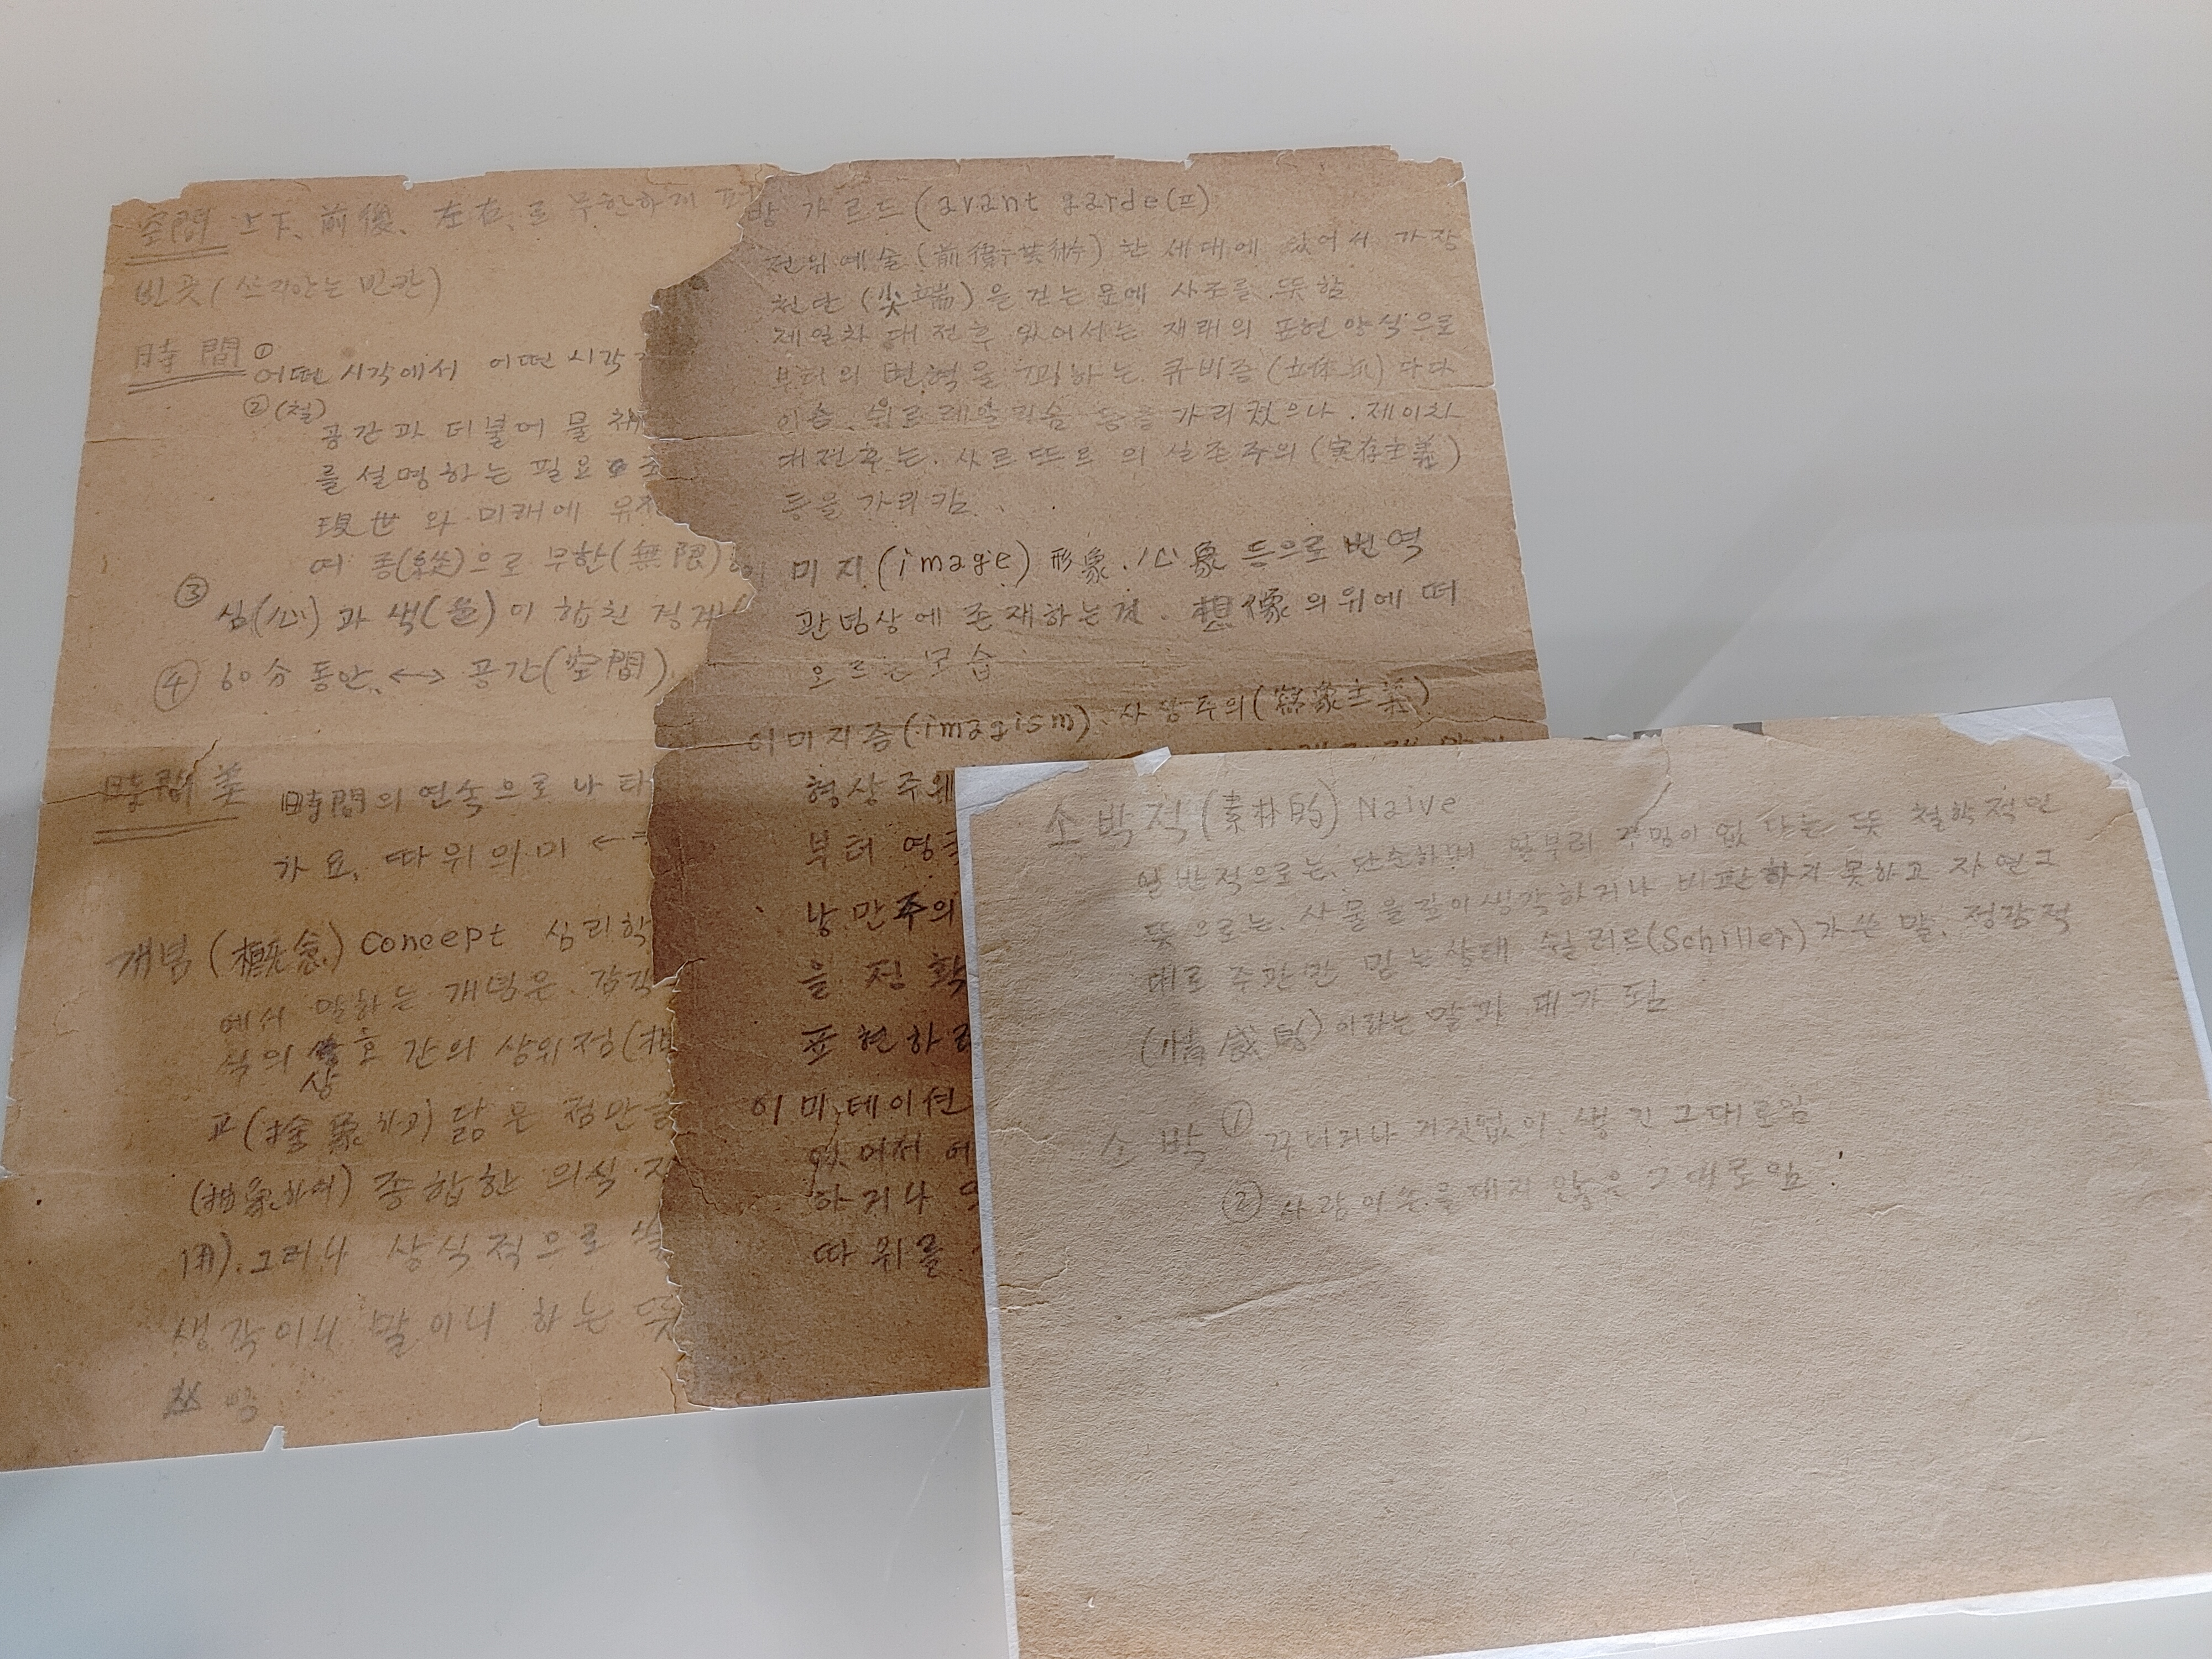 空間 上下、前後、左右、로 무한하게 퍼
빈곳(쓰지않는 빈칸)
時間 ① 어떤 시각에서 어떤 시각
②(철) 공간과 더불어 물체
를 설명하는 필요
現世와 미래에
여 종(縱)으로 무한(無限)
③ 심(心)과 색(色)이 합친 경계
④ 60分 동안. ↔ 공간(空間)
時間美 時間의 연속으로 나타
가요, 따위의 미 ↔
개념(概念) concept 심리학
에서 말하는 개념은. 감각
식의 상호 간의 상위점(相
고(捨象하고) 닮은 점만을
(抽象하여) 종합한 의식
用). 그러나 상식적으로
생각이니 말이니 하는 뜻

방가르드(avant garde(프)
전위예술(前衛芸術) 한 세대에 있어서 가장
첨단(尖端)을 걷는 문예 사조를 뜻함
제일차 대전후 있어서는 재래의 표현양식으로
부터의 변혁을 꾀하는 큐비즘(立体派) 다다
이슴. 쉬르레알리슴 등을 가리켰으나. 제이차
대전후는. 사르뜨르의 실존주의(実存主義)
등을 가리킴.
이미지(image) 形象.心象 등으로 번역
관념상에 존재하는것. 想像의 위에 떠
오르는 모습
이미지즘(imagism). 사상주의(寫象主義)
형상주위
부터 영국
낭만주의
을 정확
표현하려
이미테이션
있어서 예
하거나
따위를
소박적(素朴的) Naive
일반적으로는. 단순하며 아무리 꾸밈이 없다는 뜻 철학적인
뜻으로는. 사물을 깊이 생각하거나 비판하지 못하고 자연그
대로 주관만 믿는상태 쉴러르(Schiller)가 쓴 말. 정감적
(情感的)이라는 말과 대가 됨
소박 ① 꾸미거나 거짓없이. 생긴 그대로임
② 사람이 손을 대지 않은 그대로임.